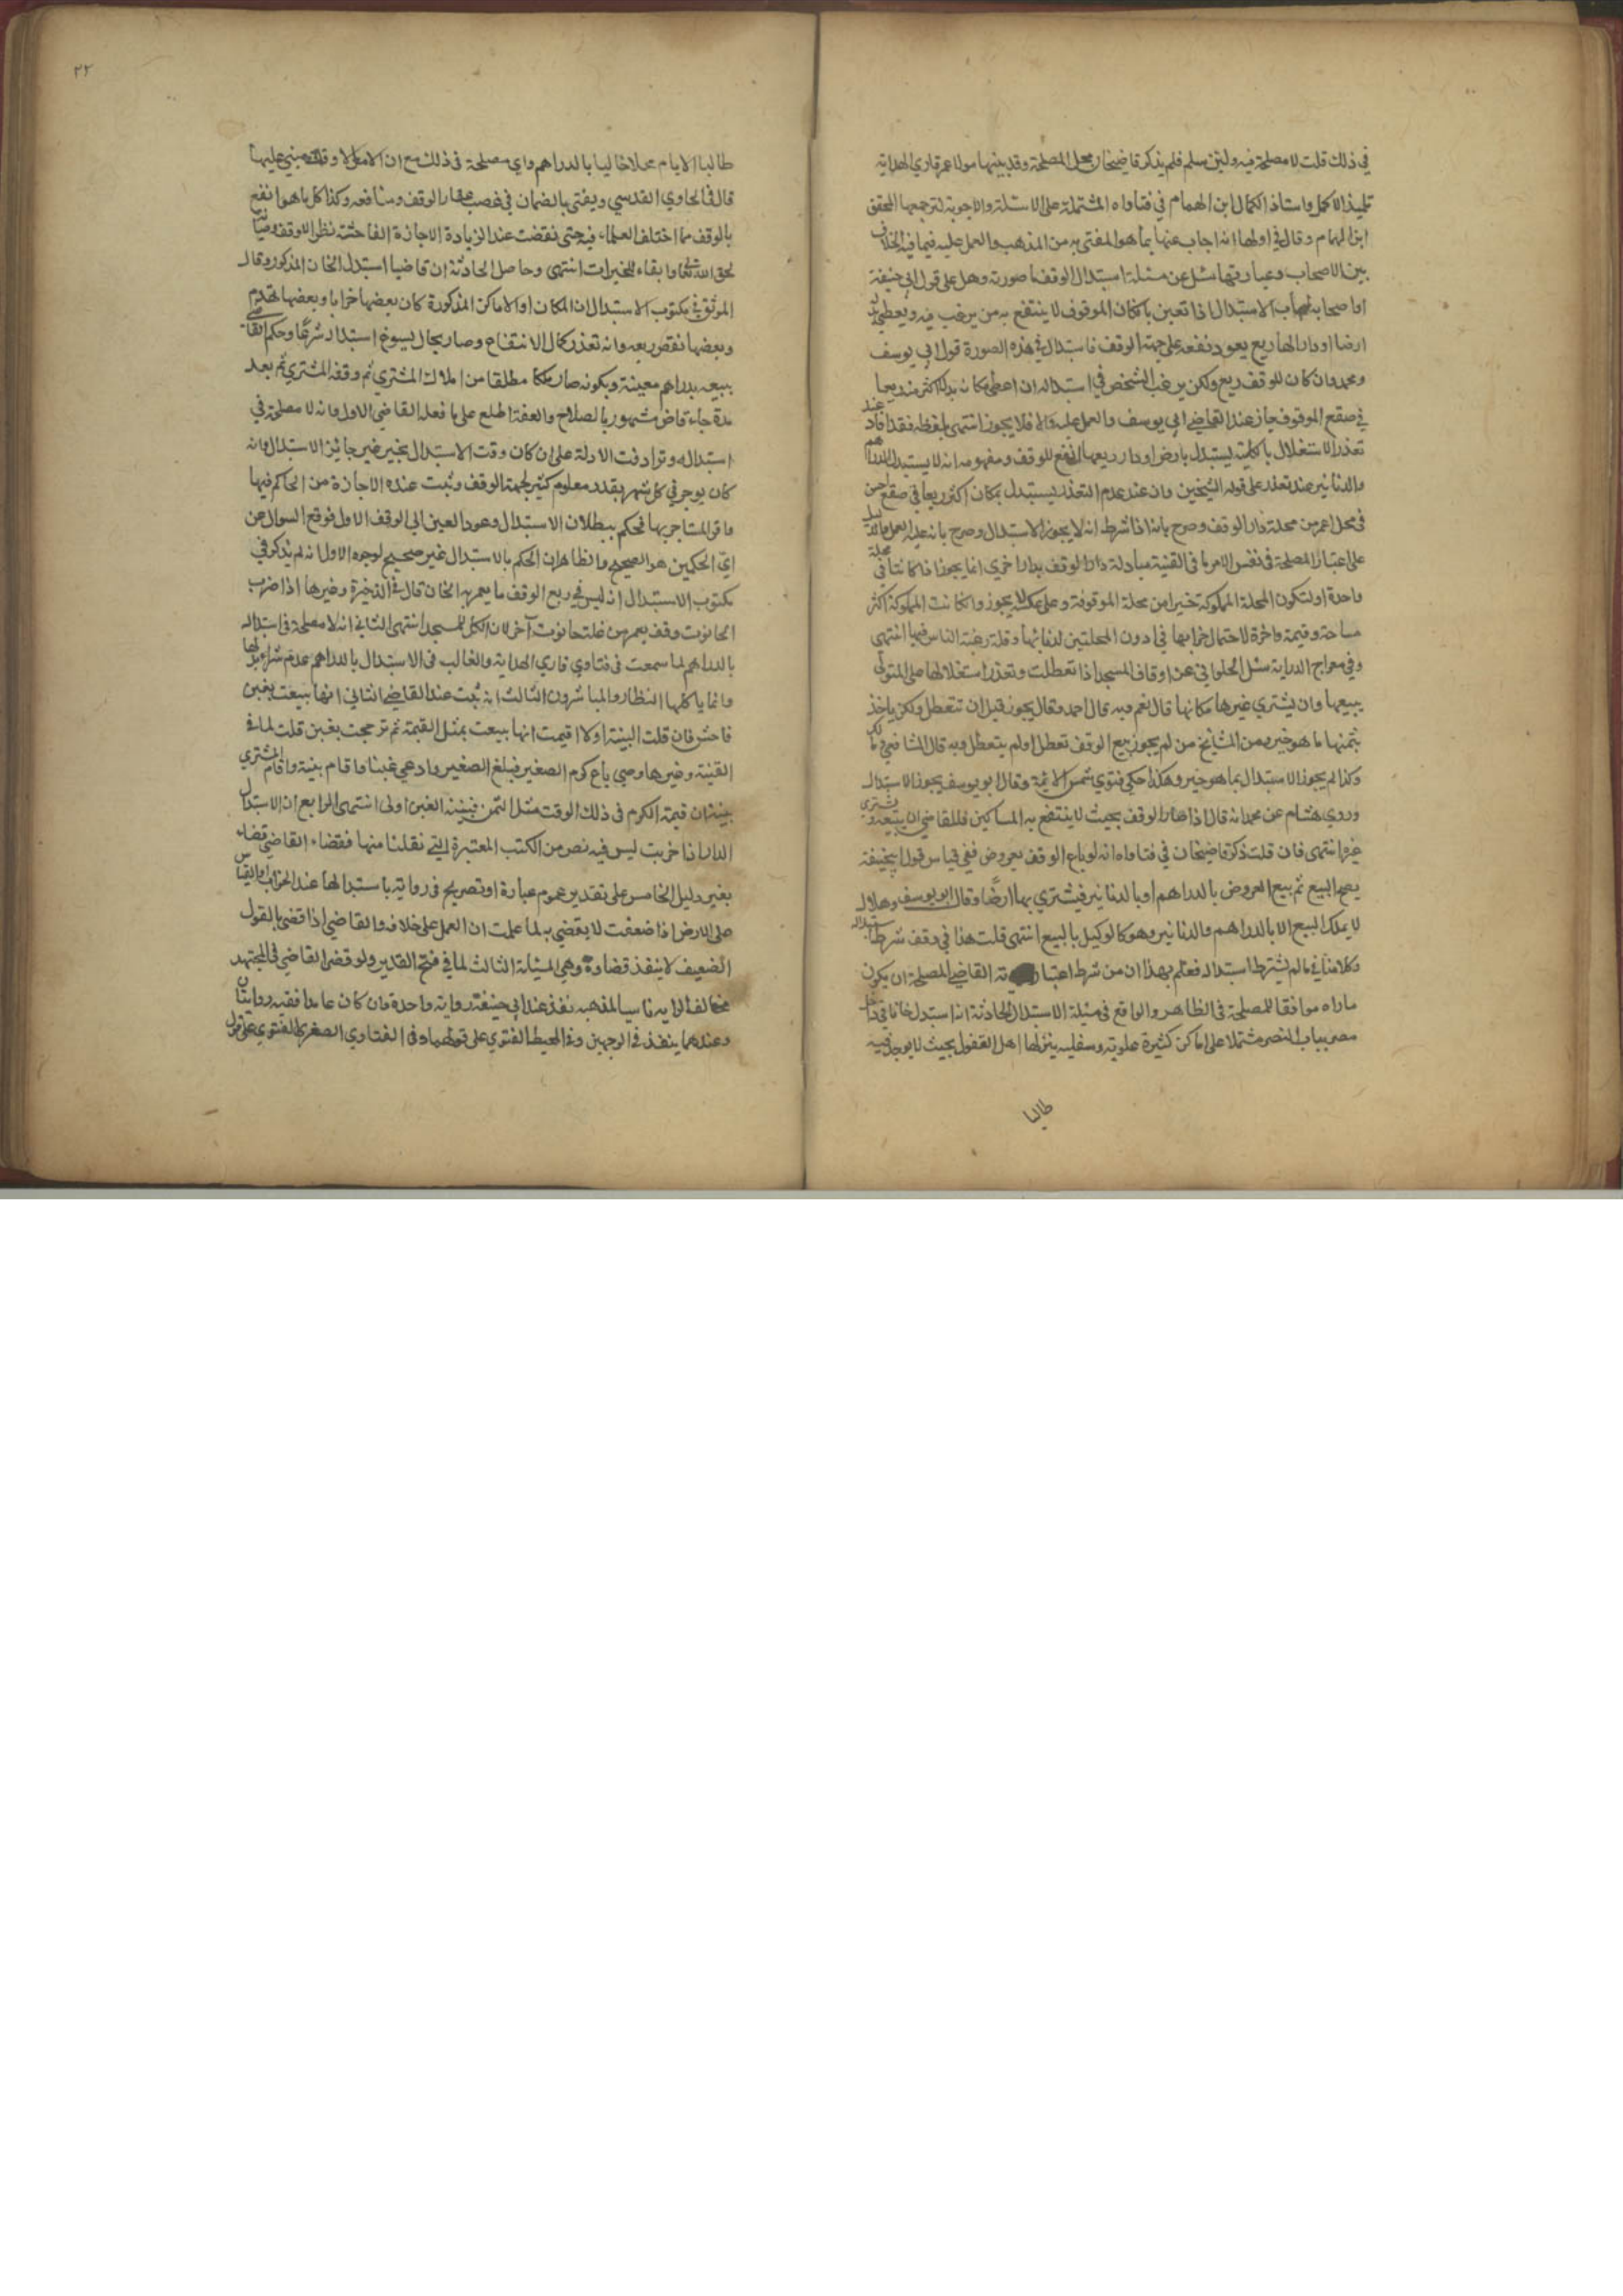 في ذلك قلت لا مصلحة فيه ولئن سلم فلم يذكر قاضيخان محل المصلحة وقد بينها مولانا عمر قاري الهداية
تلميذ الاكمل واستاذ الكمال ابن الهمام في فتاواه المشتملة على الاسئلة والاجوبة لترجمعها المحقق
ابن الهمام وقال في اولها انه اجاب عنها بما هو المفتى به من المذهب والعمل عليه فيما فيه الخلاف
بين الاصحاب وعبارتها سئل عن مسئلة استبدال الوقف ما صورته وهل على قول ابي حنيفة
او اصحابه اجاب الاستبدال اذا تعين بان كان الموقوف لا ينتفع به من يرغب فيه ويعطي بدله
ارضا او دارا لها ريع يعود نفعه على جهة الوقف فاستبدال في هذه الصورة قول ابي يوسف
ومحمد وان كان للوقف ريع ولكن يرغب الشخص في استبداله ان اعطى مكانه بدلا اكثر منه ريعا
في صقع الموقوف جاز عند القاضي ابي يوسف والعمل عليه والا فلا يجوز انتهى بلفظه فقد افاد عند
تعذر الاستغلال بالكلية يستبدل بارض او دار ريعها انفع للوقف ومفهومه انه لا يستبدل بالدراهم
والدنانير عند تعذر على قوله الشيخين وان عند عدم التعذر يستبدل بمكان اكثر ريعا في صقع احسن
في محل اعمر من محلة دار الوقف وصرح بانه اذا شرط انه لا يجوز الاستبدال وصرح بانه عليه العمل والدليل
على اعتبار المصلحة في نفس الامر ما في القنية مبادلة دار الوقف بدار اخرى انما يجوز اذا كانتا في محلة
واحدة او تكون المحلة المملوكة خيرا من محلة الموقوفة وعلى عكسه لا يجوز وان كانت المملوكة اكثر
مساحة وقيمة واجرة لاحتمال خرابها في ادون المحلتين لدناتها وقلة رغبة الناس فيها انتهى
وفي معراج الدراية سئل الحلواني عن اوقاف المسجد اذا تعطلت وتعذر استغلالها هل للمتولي
يبيعها وان يشتري غيرها مكانها قال نعم وبه قال احمد وقال يجوز قبل ان تتعطل ولكن ياخذ
بثمنها ما هو خير ومن المشايخ من لم يجوز بيع الوقف تعطل او لم يتعطل وبه قال الشافعي ومالك
وكذا لم يجوز الاستبدال بما هو خير وهكذا حكي فتوى شمس الائمة وقال ابو يوسف يجوز الاستبدال
وروي هشام عن محمد انه قال اذا صار الوقف بحيث لا ينتفع به المساكين فللقاضي ان يبيعه ويشتري
غيره انتهى فان قلت ذكر قاضيخان في فتاواه انه لو باع الوقف بعروض ففي قياس قول ابي حنيفة
يصح البيع ثم يبيع العروض بالدراهم او بالدنانير فيشتري بها ارضا وقال ابو يوسف وهلال
لا يملك البيع الا بالدراهم والدنانير وهو كالوكيل بالبيع انتهى قلت هذا في وقف شرط استبداله
وكلامنا في ما لم يشترط استبداله فعلم بهذا ان من شرط اعتبار القاضي المصلحة ان يكون
ماراه موافقا للمصلحة في الظاهر والواقع في مسئلة الاستبدال الحادثة انه استبدل خانا في داخل
مصر بباب النصر مشتملا على اماكن كثيرة علوية وسفلية ينزلها اهل القفول بحيث لا يوجد فيه
طالبا
٢٢
طالبا الايام محلا خاليا بالدراهم واي مصلحة في ذلك مع ان الامر في الاوقاف مبني عليها
قال في الحاوي القدسي ويفتى بالضمان في غصب عقار الوقف ومنافعه وكذا كل ما هو انفع
بالوقف مما اختلف العلماء فيه حتى نقضت عند الزيادة الاجازة الفاحشة نظرا للوقف وصيانة
لحق الله تعالى وابقاء للخيرات انتهى وحاصل الحادثة ان قاضيا استبدل الخان المذكور وقال
الموثق في مكتوب الاستبدال ان المكان او الاماكن المذكورة كان بعضها خرابا وبعضها تهدم
وبعضها نقص ريعه وانه تعذر كمال الانتفاع وصار بحال يسوغ استبداله شرعا وحكم القاضي
ببيعه بدراهم معينة وبكونه صار ملكا مطلقا من املاك المشتري ثم وقفه المشتري ثم بعد
مدة جاء قاض مشهور بالصلاح والعفة اطلع على ما فعله القاضي الاول وانه لا مصلحة في
استبداله وترادفت الادلة على ان كان وقت الاستبدال بخير غير جائز الاستبدال وانه
كان يوجر في كل شهر بقدر معلوم كثير لجهة الوقف وثبت عنده الاجازة من الحاكم فيها
واقر المستاجر بها فحكم ببطلان الاستبدال وعود العين الى الوقف الاول فوقع السوال عن
اي الحكمين هو الصحيح والظاهر ان الحكم بالاستبدال غير صحيح لوجوه الاول انه لم يذكر في
مكتوب الاستبدال انه ليس في ريع الوقف ما يعمر به الخان قال في الذخيرة وغيرها اذا خرب
الحانوت وقف يعمر من غلة حانوت آخر لان الكل للمسجد انتهى الثاني انه لا مصلحة في استبداله
بالدراهم لما سمعت في فتاوي قاري الهداية والغالب في الاستبدال بالدراهم عدم شراء بدلها
وانما ياكلها النظار والمباشرون الثالث انه ثبت عند القاضي الثاني انها بيعت بغبن
فاحش فان قلت البينة اولا اقيمت انها بيعت بمثل القيمة ثم ترجحت بغبن قلت لما في
القنية وغيرها وصي باع كرم الصغير فبلغ الصغير وادعى غبنا واقام بينة واقام المشتري
بينة ان قيمة الكرم في ذلك الوقت مثل الثمن فبينة الغبن اولى انتهى الرابع ان الاستبدال
الدار اذا خربت ليس فيه نص من الكتب المعتبرة التي نقلنا منها فقضاء القاضي قضاء
بغير دليل الخامس على تقدير عموم عبارة او تصريح في رواية باستبدالها عند الخراب او القياس
على الارض اذا ضعفت لا يقضي به لما علمت ان العمل على خلافه والقاضي اذا قضى بالقول
الضعيف لا ينفذ قضاوه وهي المسئلة الثالث لما في فتح القدير ولو قضى القاضي في المجتهد
مخالفا لرايه ناسيا لمذهبه نفذ عند ابي حنيفة رواية واحدة وان كان عامدا ففيه روايتان
وعندهما ينفذ في الوجهين وفي المحيط الفتوى على قولهما وفي الفتاوي الصغرى الفتوى على قول